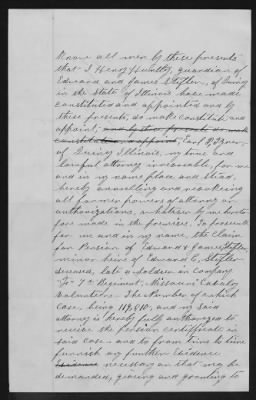 Know all men by these presents
that I Henry Humble, guardian of
Edward and James Stifler, of Quincy
in the State of Illinois have made
constituted and appointed and by
these presents, do make constitute and
appoint, and by these presents do make
constitute and appoint, Carl
of Quincy Illinois, my true and
lawful attorney irrevocable, for me
and in my name, place and stead,
hereby annulling and revoking
all former powers of attorney or
authorizations, whatever
made in the premises. To prosecute
for me and in my name, the Claim
for Pension of Edward & James Stifler
minor heirs of Edward C, Stifler
deceased, late a soldier in Company
7th Regiment, Missouri Cavalry
Volunteers. The Number of which
case, being and my said
attorney is hereby fully authorized to
receive the pension certificate in
said case, and to from time to time
furnish any further Evidence
Evidence necessary or that may be
demanded, giving and granting to